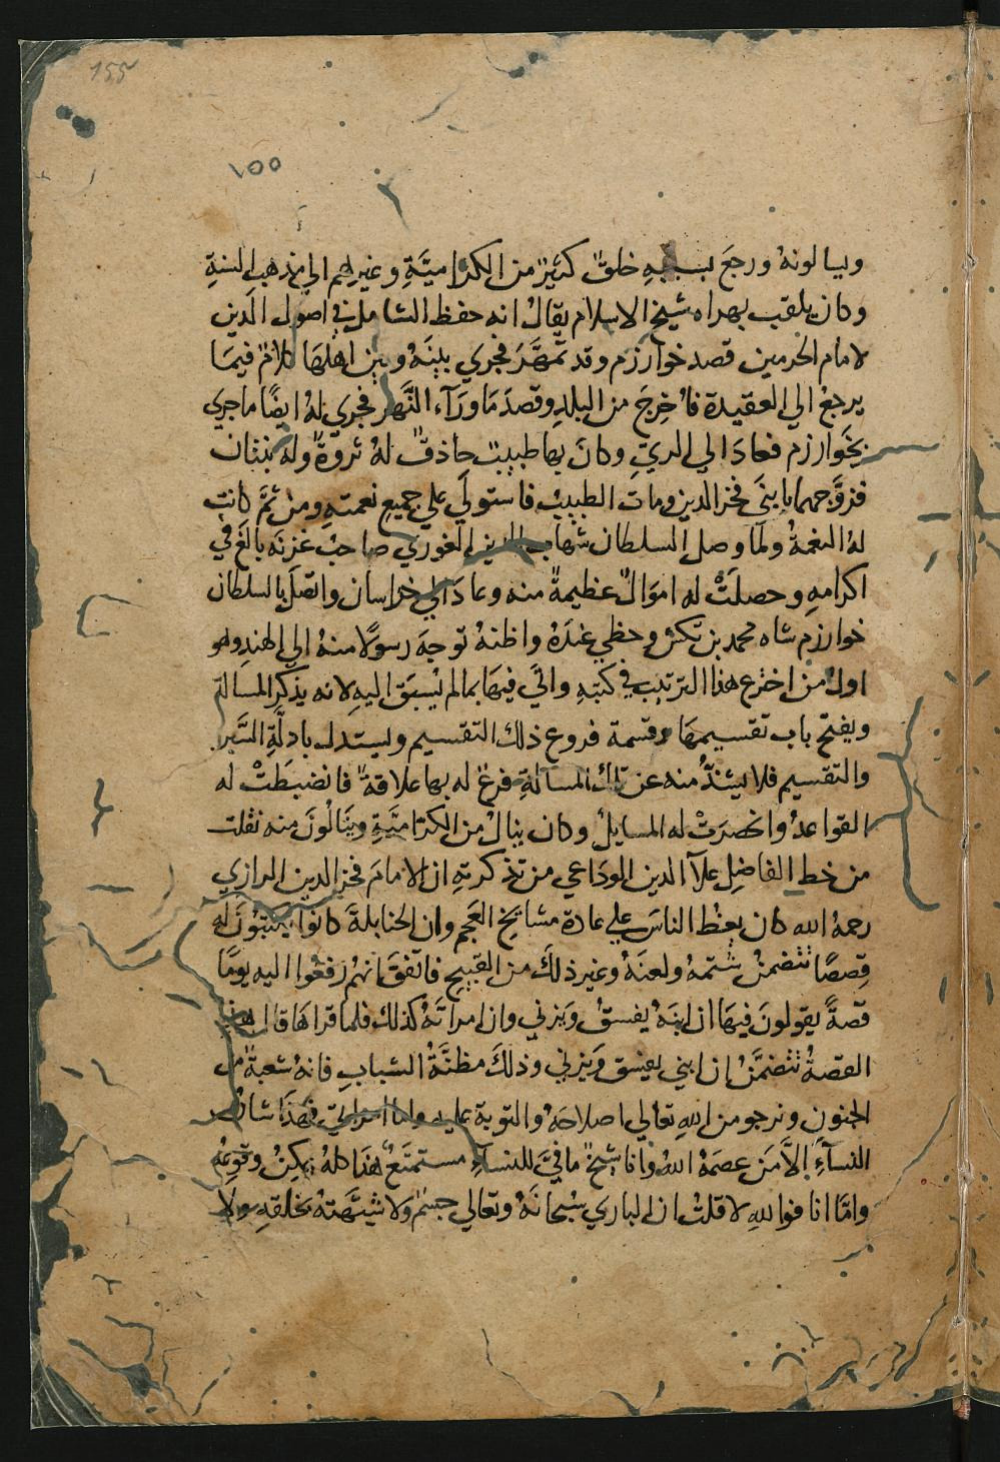 155
١٥٥
ويسالونهُ ورجعَ بسببهِ خلقٌ كثيرٌ من الكرّاميَّةِ وغيرهم الي مذهب السنةِ
وكان يلقب بهراه شيخ الاسلام يقالُ انه حفظ الشامل في اصول الدين
لامام الحرمين قصد خوارزم وقد تمهَّرَ فجري بينَهُ وبين اهلهَا كلامٌ فيمَا
يرجعُ الي العقيدة فاُخرِجَ من البلدِ وقصدَ مَا ورَآء النَّهر فجري لهُ ايضًا ماجري
بخَوارزم فعادَ الي الريِّ وكانَ بها طبيبٌ حاذقٌ لهُ ثروةٌ ولهُ بنتان
فزوَّجهما بابني فخر الدين ومات الطبيبُ فاستولَي علي جميع نعمتهِ ومن ثمَّ كانت
لهُ النعمةُ ولما وصل السلطان شهاب الدين الغوري صاحبُ غزنه بالغَ في
اكرامهِ وحصلَتْ له اموَالٌ عظيمةٌ منه وعادَ الي خراسان واتصلَ بالسلطان
خوارزم شاه محمد بن تكش وحظي عندَهُ واظنهُ توجهَ رسولًا منهُ الي الهندِ وهو
اولُ من اخترع هذا الترتيب في كتبهِ واتي فيهَا بما لم يُسبَق اليهِ لانه يذكر المسالة
ويفتح باب تقسيمهَا وقسمة فروع ذلك التقسيم ويستدل بادلَّةِ السَّبر
والتقسيم فلا يشذُّ منه عن تلك المسالةِ فرعٌ له بها علاقةٌ فانضبَطَتْ له
القواعدُ وانحصرَتْ له المسايلُ وكان ينالُ من الكرّاميَّةِ وينَالُونَ منه نقلت
من خط الفاضِل علآ الدين الودَاعي من تذكرتهِ ان الامامَ فخر الدين الرازي
رحمهُ الله كان يعِظُ الناسَ علي عادة مشايخ العَجم وان الحنابلةَ كانوا يكتبُونَ له
قِصصًا تتضمنُ شتمهُ ولعنَهُ وغير ذلكَ من القبيح فاتفقَ انهمْ رفعُوا اليه يومًا
قصةً يقولونَ فيهَا ان ابنَهُ يفسقُ ويَزني وان امراتَهُ كذلك فلما قراهَا قال هذهِ
القصةُ تتضمَّنُ ان ابني يفسق ويَزني وذلكَ مظنَّةُ الشبابِ فانهُ شعبةٌ من
الجنون ونرجو من اللهِ تعالي اصلاحَهُ والتوبة عليه واما امراتي فهذَا شانُ
النسآءِ الَّا مَن عصمَهُ اللهُ وانا شيخٌ ما فيَّ للنساءِ مستمتَعٌ هَذا كلهُ يمكنُ وقوعُهُ
وامَّا انا فواللهِ لا قلتُ ان الباري سُبْحَانَهُ وتعالي جسمٌ ولا شبَّهتهُ بخلقهِ ولا